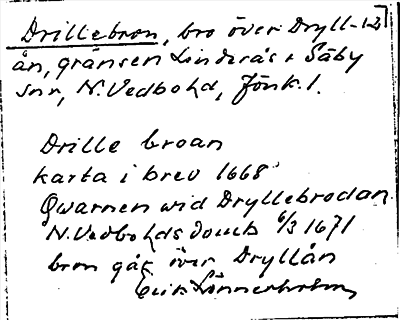 Drillebron, bro över Dryll-
ån, gränsen Linderås o Säby
snr, N. Vedbo hd, Jönk. l.
Drille broan
karta i brev 1668
Qwarnen wid Dryllebrodan
N. Vedbo hds domb 6/3 1671
bron går över Dryllån
Erik Lönnerholm